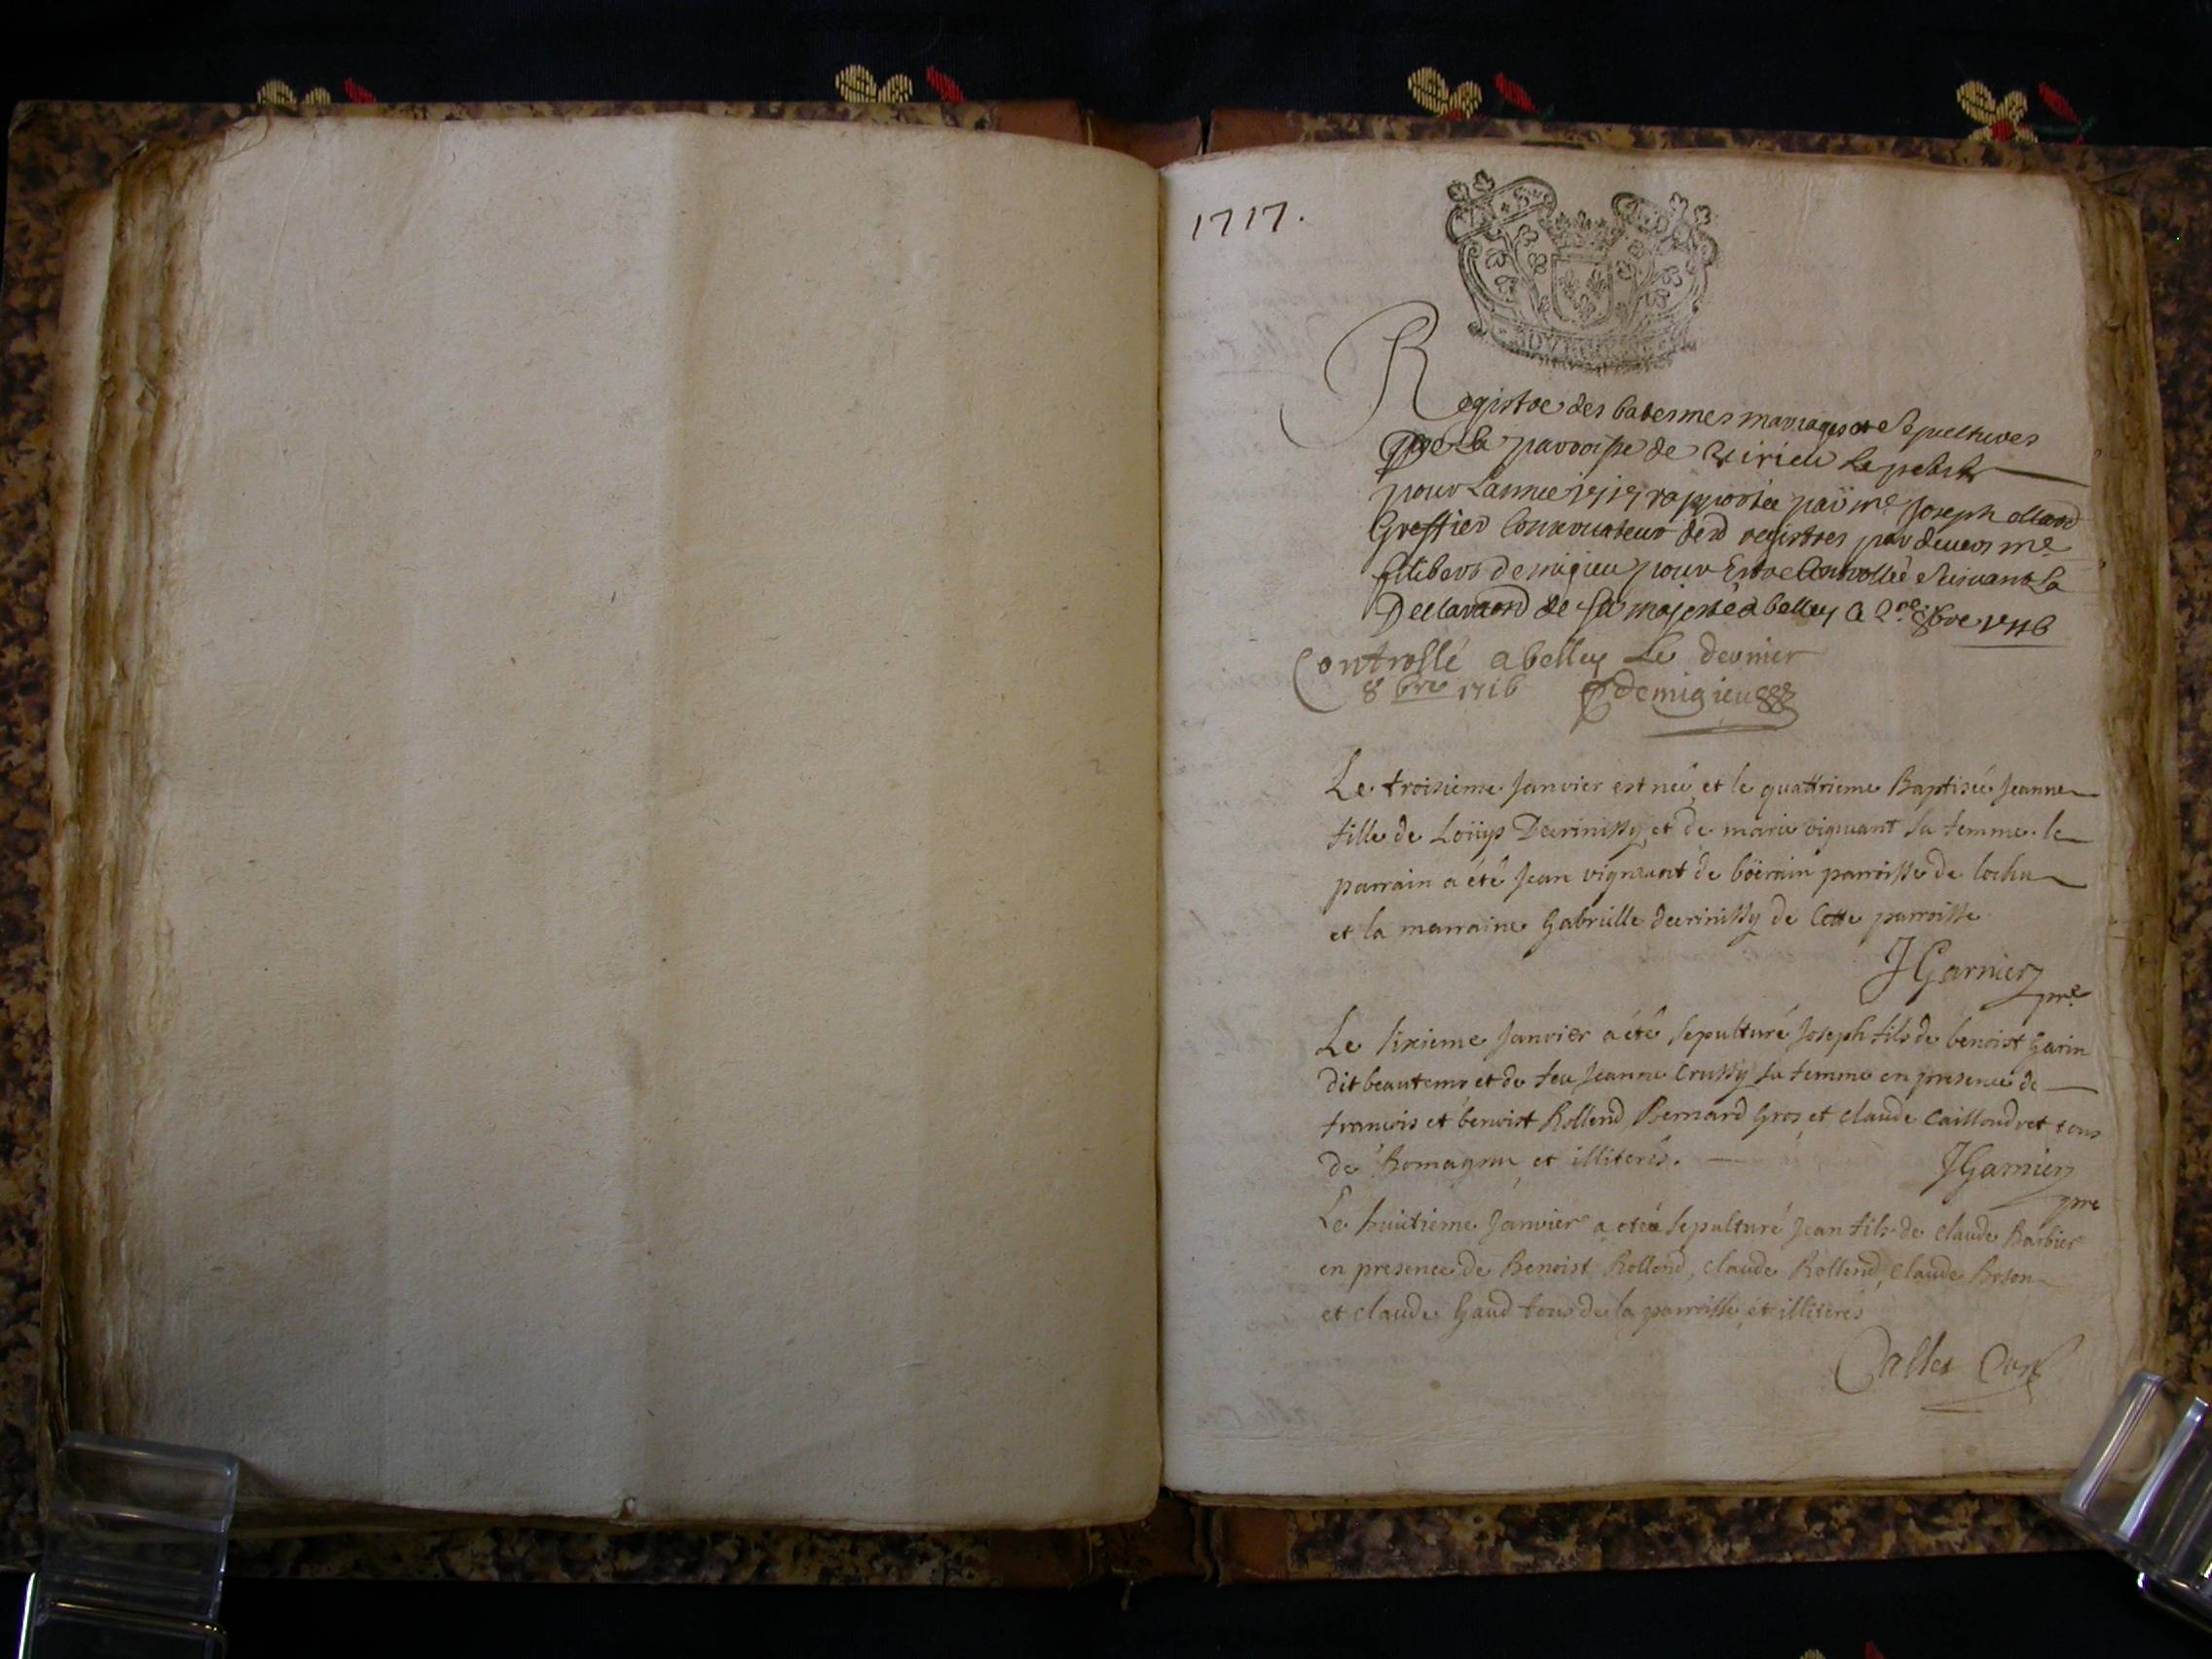 1717.
Registre des batesmes mariages et Sepultures
De la parroisse de Virieu le petit
pour Lannee 1717 rapportée par me Joseph
Greffier Conservateur desd registres par devers me
filibert demigieu pour Estre Controllée Suivant La
Declaraon de sa majesté a belley le 8bre 1716
Controllé a belley Le dernier
8bre 1716 demigieu
Le troisieme Janvier est neé et le quattrieme Baptisée Jeanne
fille de Loüys et de marie vignant sa femme. le
parrain a été Jean vignant de parroisse de lochieu
et la marraine Gabrielle de Cette parroisse
JGarnier
pre
Le sixieme Janvier a été sepulturé Joseph fils de benoist Garin
dit beautems et de feu Jeanne Crussy sa femme en presence de
francois et benoist Rollend Bernard Gros et claude Cailloudret tous
de Romagnieu et illiterés.
JGarnier
pre
Le huitieme Janvier a eté sepulturé Jean fils de claude Barbier
en presence de Benoist Rollend, claude Rollend, claude Boson
et claude Gaud tous de la parroisse et illiterés
Calles Curé